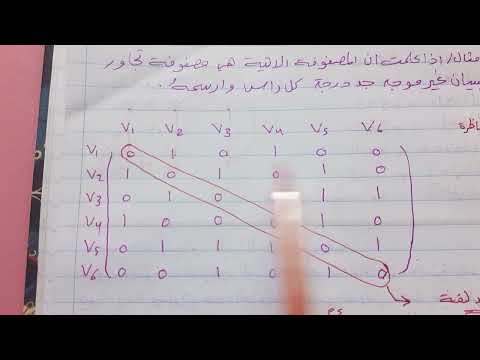 مثال/ اذا علمت ان المصفوفة الاتية هي مصفوفة تجاور
لبيان غير موجه جد درجة كل راس وارسمه.
V₁ V₂ V₃ V₄ V₅ V₆
V₁ 0 1 0 1 0 0
V₂ 1 0 1 0 1 0
V₃ 0 1 0 1 1
V₄ 1 0 0 1 0
V₅ 0 1 1 0 1
V₆ 0 0 1 1 0